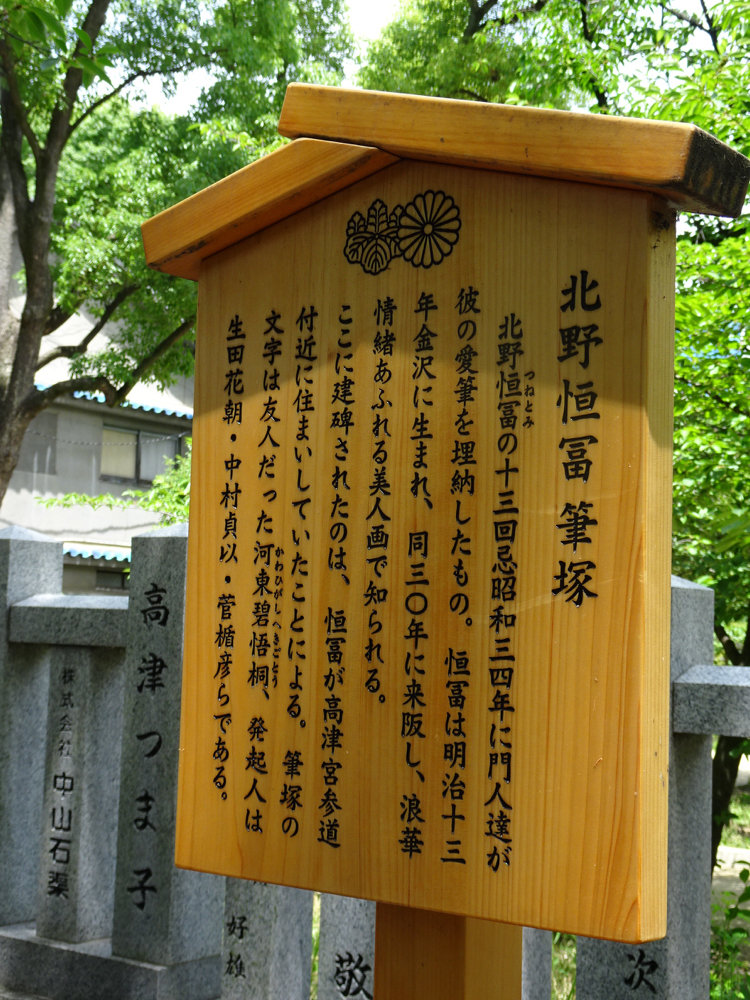 北野恒冨 筆塚
北野恒冨の十三回忌昭和三四年に門人達が
つねとみ
彼の愛筆を埋納したもの。恒冨は明治十三
年金沢に生まれ、同三〇年に来阪し、浪華
情緒あふれる美人画で知られる。
ここに建碑されたのは、恒冨が高津宮参道
付近に住まいしていたことによる。筆塚の
文字は友人だった河東碧悟桐、発起人は
かわひがしへきごとう
生田花朝・中村貞以・菅楯彦らである。
高津つま子
株式会社 中山石渠
好雄
敬
次